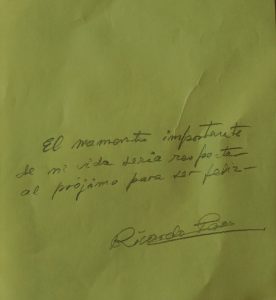 El momento importante
de mi vida seria respetar
al prójimo para ser feliz-
Ricardo